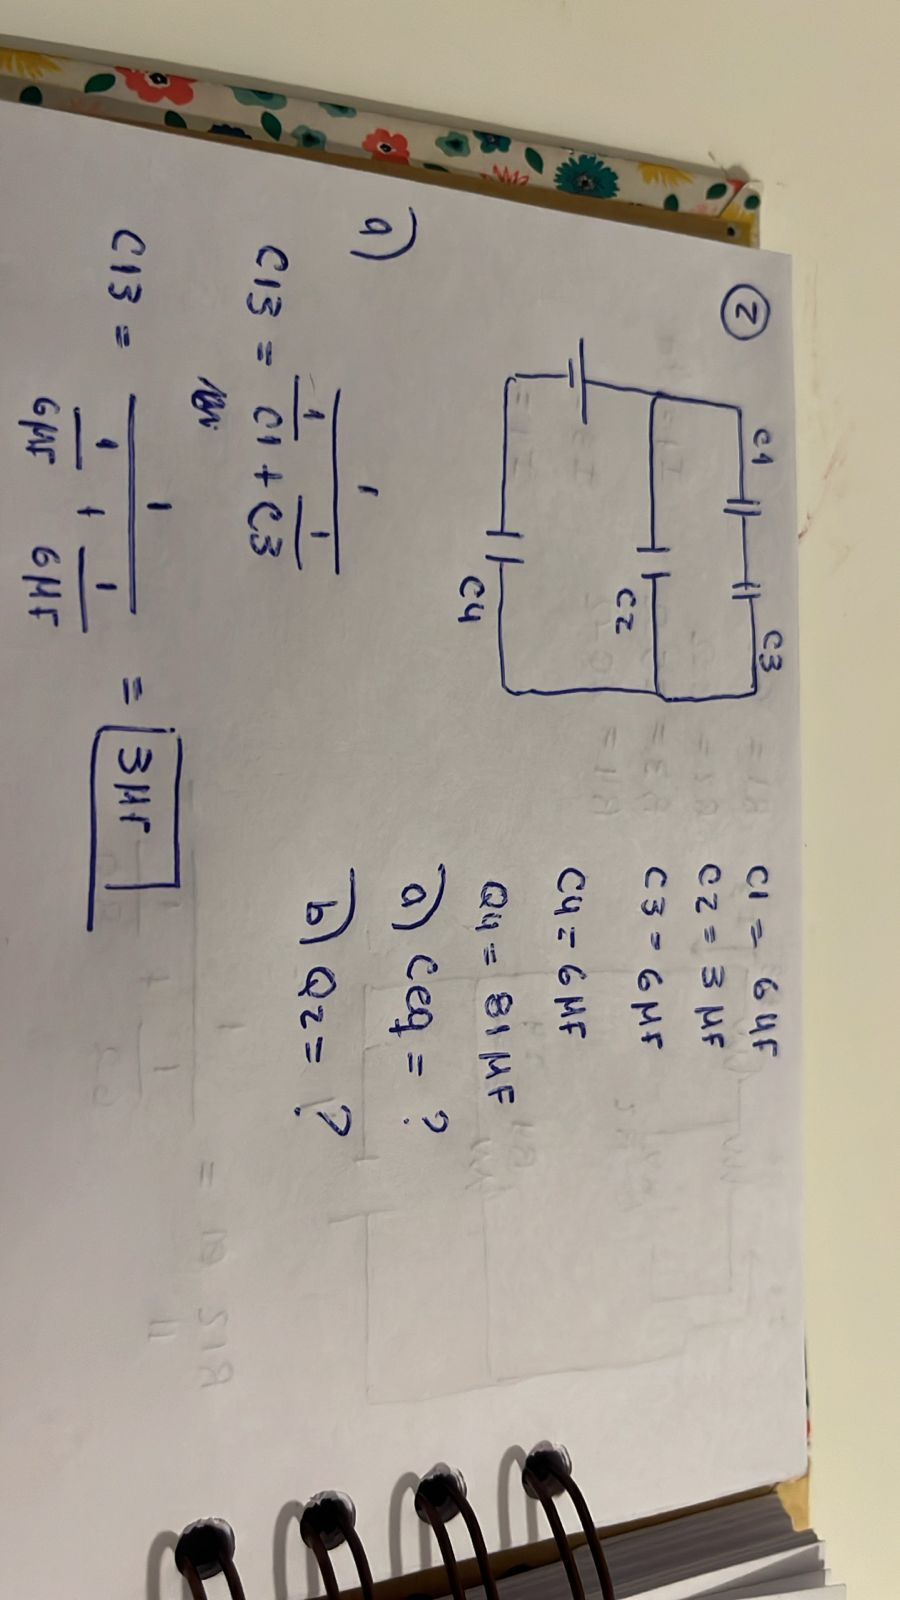 2
C1
C3
C2
C4
C1 = 6 μF
C2 = 3 μF
C3 = 6 μF
C4 = 6 μF
Q4 = 81 μF
a) Ceq = ?
b) Q2 = ?
a)
1
C13 = 1 1
C1 + C3
1
C13 = 1 + 1 = 3 μF
6μF 6μF